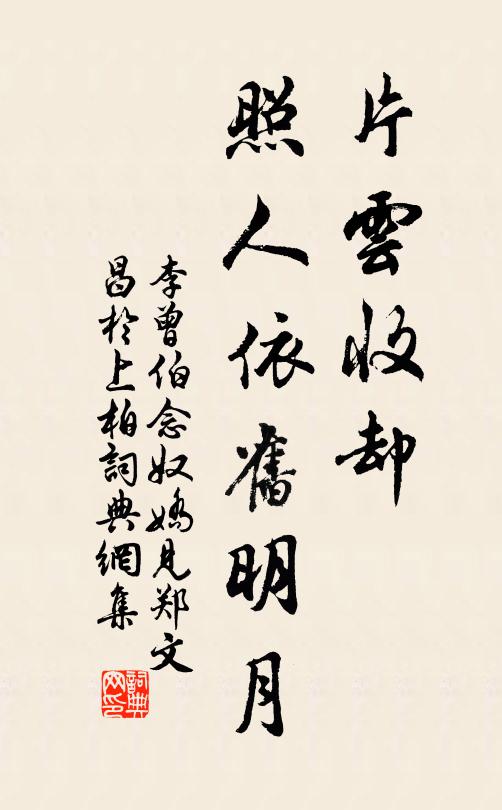 片雲收却
照人依舊明月
李曾伯念奴嬌見郑文
昌於上柏詞典網集
詞典
网印